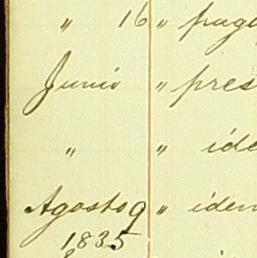 " 16 " pag
Junio " pres
" " ide
Agosto 9 " iden
1835